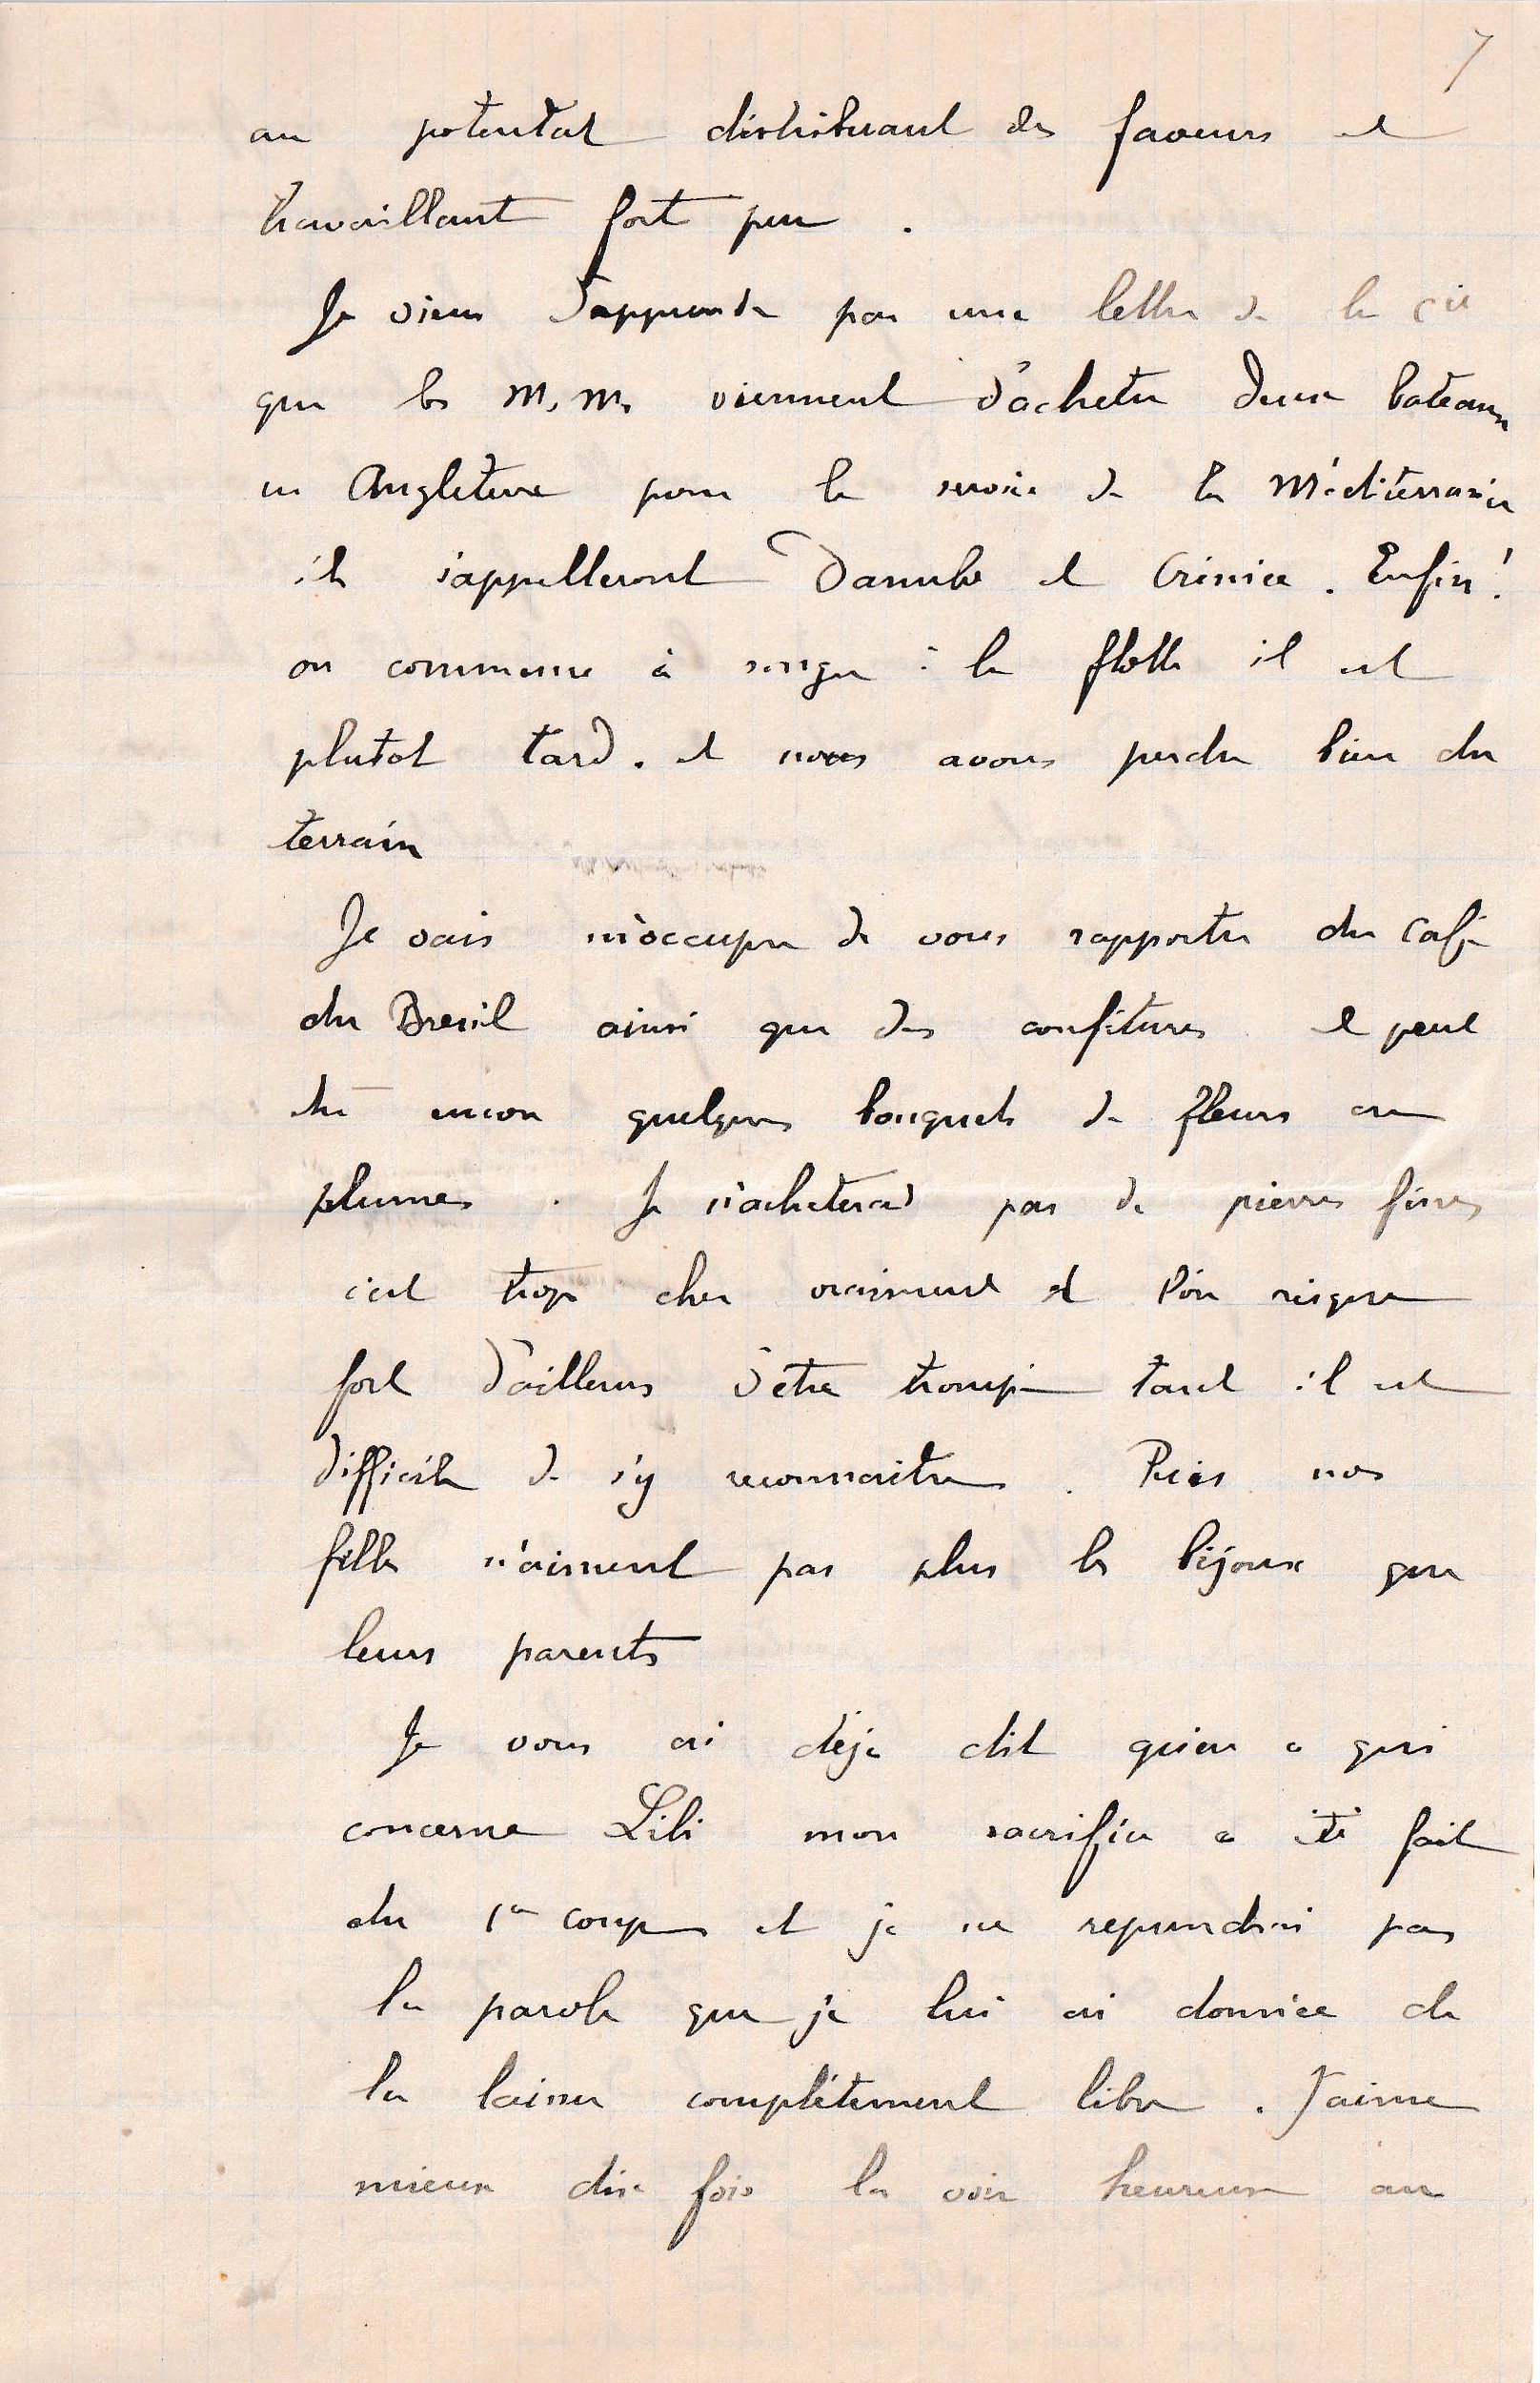 7
un potentat distribuant des faveurs et
travaillant fort peu .
Je viens d'apprendre par une lettre de la Cie
que les M. M. viennent d'acheter deux bateaux
en Angleterre pour le service de la Méditerranée
ils s'appelleront Danube et Crimée . Enfin !
on commence à songer à la flotte il est
plutot tard . et nous avons perdu bien du
terrain
Je vais m'occuper de vous rapporter du Café
du Bresil ainsi que des confitures et peut
etre encore quelques bouquets de fleurs en
plumes . Je n'acheterai pas de pierres fines
c'est trop cher vraiment et l'on risque
fort d'ailleurs d'etre trompé tant il est
difficile de s'y reconnaitre . Puis nos
filles n'aiment pas plus les bijoux que
leurs parents
Je vous ai déjà dit qu'en ce qui
concerne Lili mon sacrifice a été fait
du 1er coup et je ne reprendrai pas
la parole que je lui ai donnée de
la laisser complètement libre . J'aime
mieux dix fois la voir heureuse au